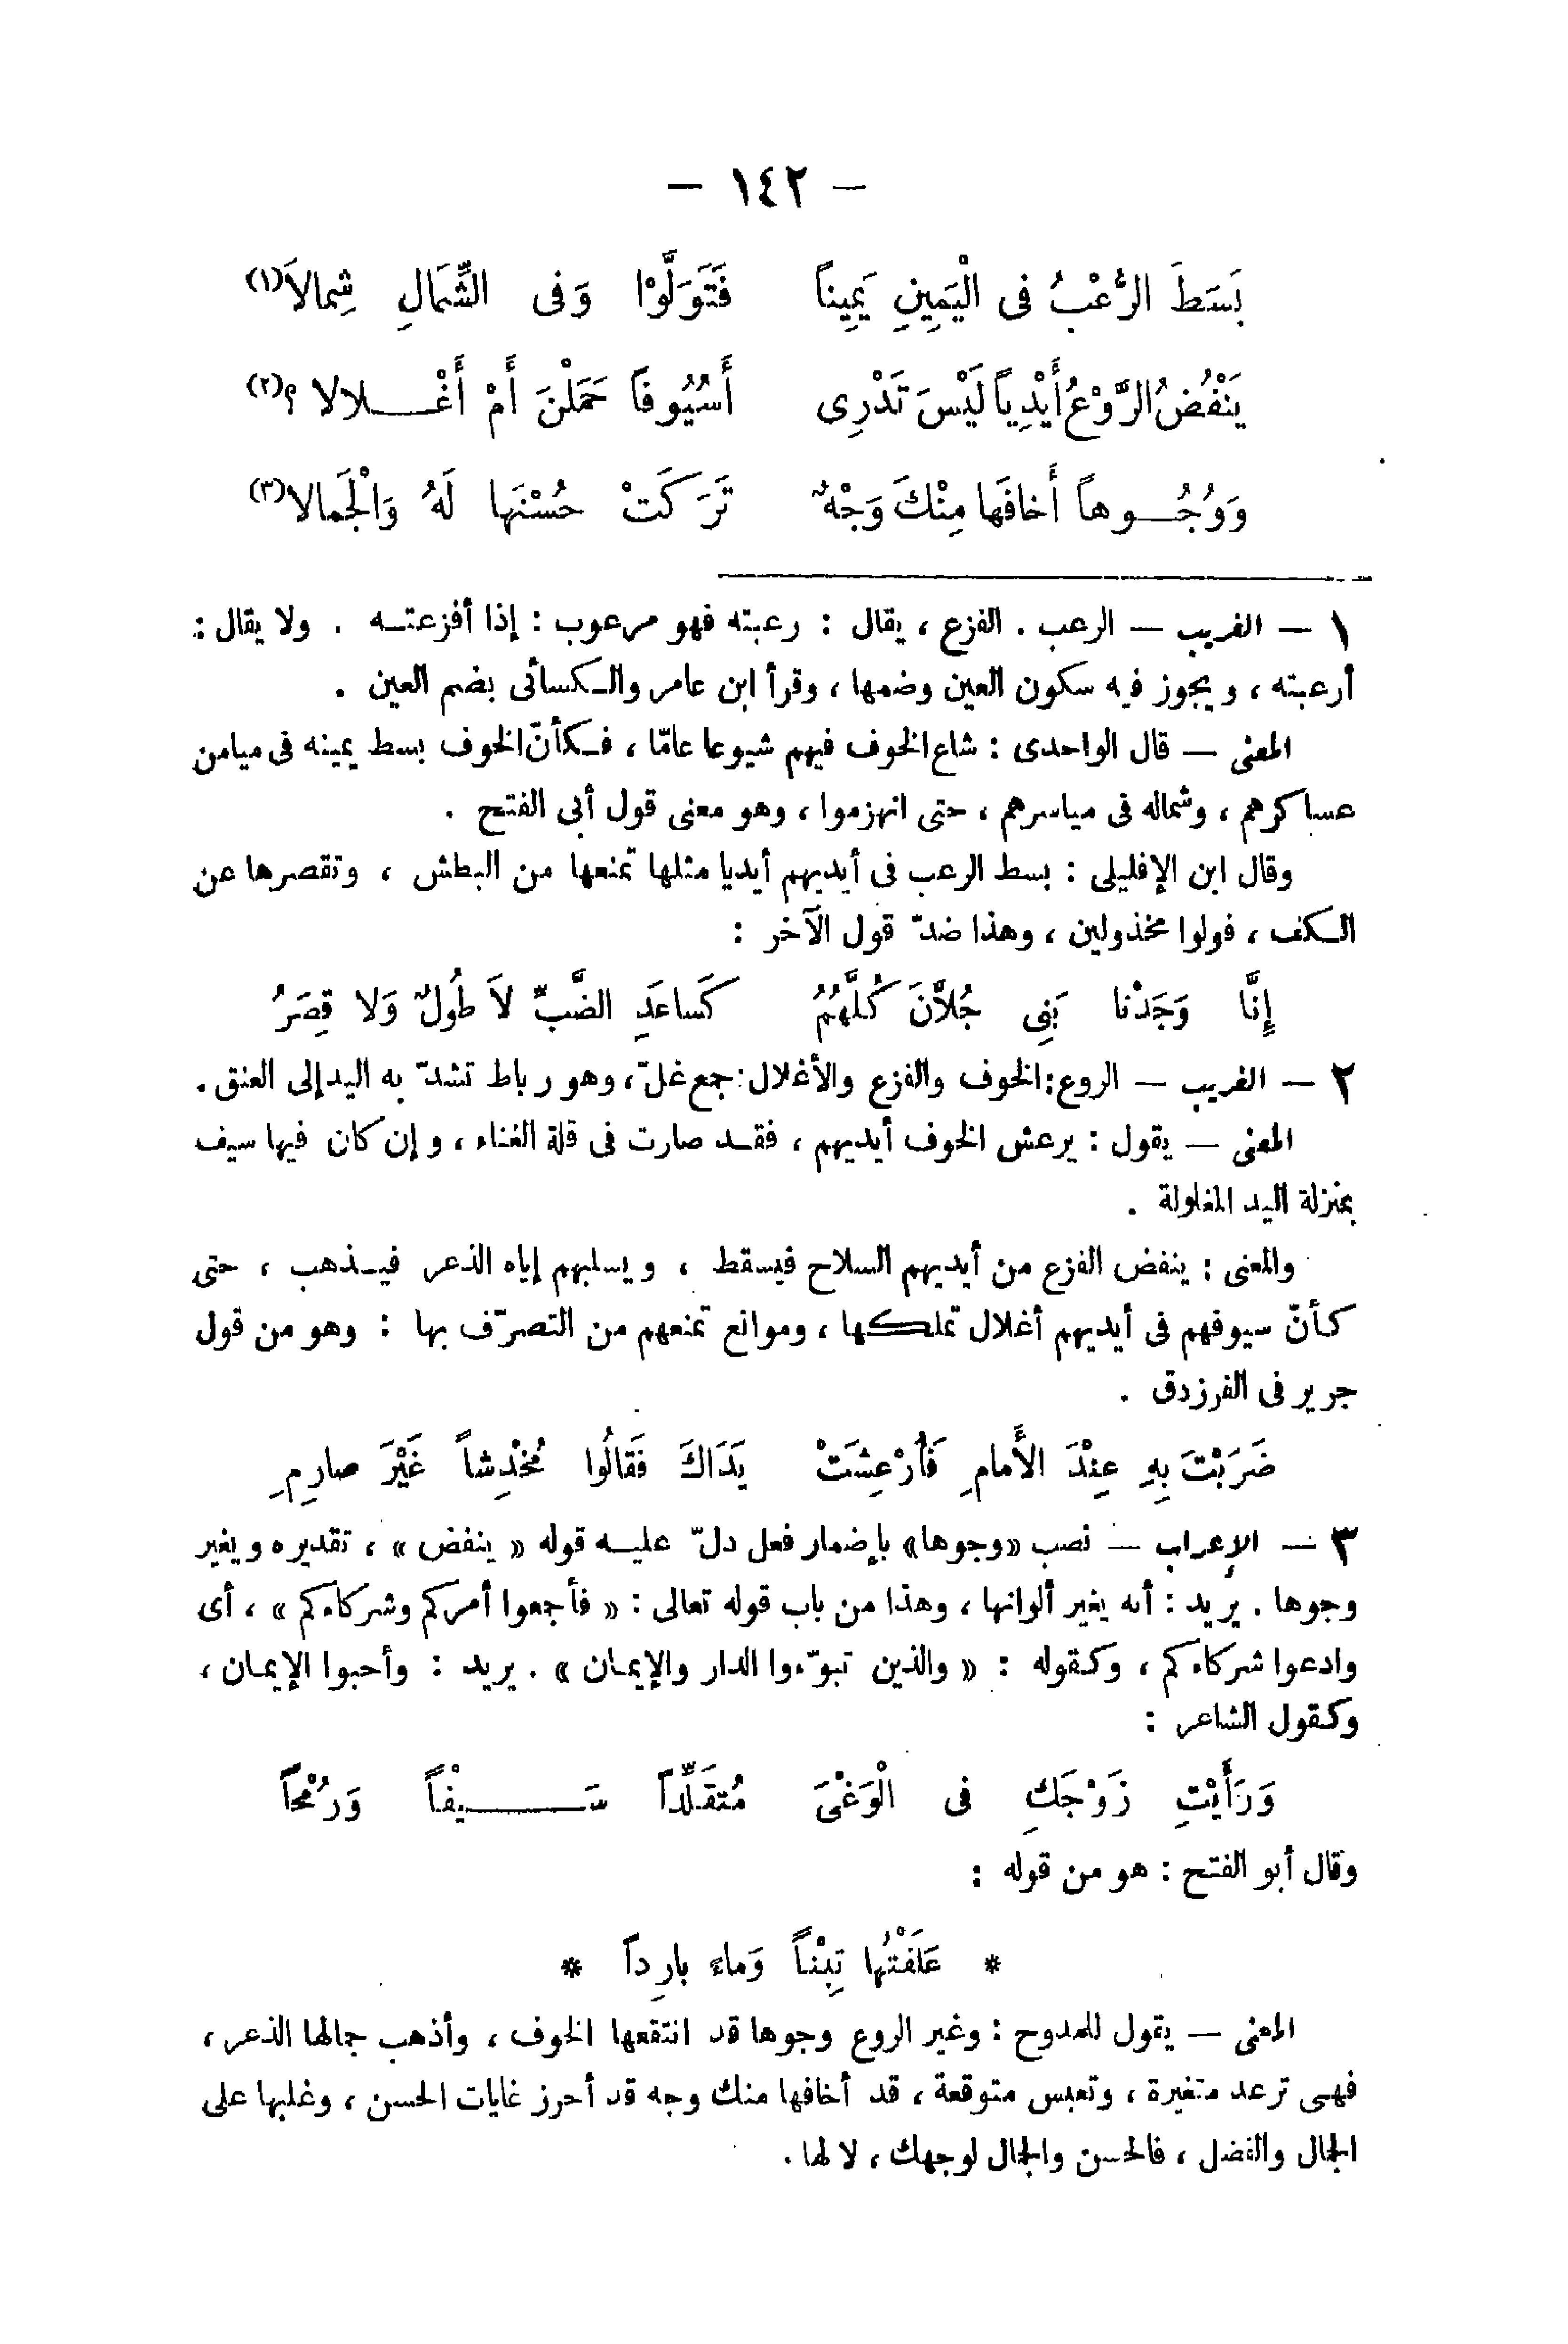 — ١٤٢ —
بَسَطَ الرُّعْبُ فى الْيَمِينِ يَمِيناً فَتَوَلَّوْا وَفى الشِّمَالِ شِمالاَ(١)
يَنْفُضُ الرَّوْعُ أَيْدِياً لَيْسَ تَدْرِى أَسُيُوفاً حَمَلْنَ أَمْ أَغْـــلالا ؟(٢)
وَوُجُــوهاً أَخافَها مِنْكَ وَجْهٌ تَرَكَتْ حُسْنَها لَهُ وَالْجَمالا(٣)
١ — الغريب — الرعب . الفزع ، يقال : رعبته فهو مرعوب : إذا أفزعتــه . ولا يقال :
أرعبته ، ويجوز فيه سكون العين وضمها ، وقرأ ابن عامر والكسائى بضم العين .
المعنى — قال الواحدى : شاع الخوف فيهم شيوعا عامّا ، فكأنّ الخوف بسط يمينه فى ميامن
عساكرهم ، وشماله فى مياسرهم ، حتى انهزموا ، وهو معنى قول أبى الفتح .
وقال ابن الإفليلى : بسط الرعب فى أيديهم أيديا مثلها تمنعها من البطش ، وتقصرها عن
الكف ، فولوا مخذولين ، وهذا ضدّ قول الآخر :
إِنَّا وَجَدْنا بَنِى جُلاَّنَ كُلَّهُمُ كَساعَدِ الضَّبِّ لاَ طُولٌ وَلا قِصَرُ
٢ — الغريب — الروع : الخوف والفزع والأغلال : جمع غلّ ، وهو رباط تشدّ به اليد إلى العنق .
المعنى — يقول : يرعش الخوف أيديهم ، فقــد صارت فى قلة الغناء ، وإن كان فيها سيف
بمنزلة اليد المغلولة .
والمعنى : ينفض الفزع من أيديهم السلاح فيسقط ، ويسلبهم إياه الذعر فيــذهب ، حتى
كأنّ سيوفهم فى أيديهم أغلال تملكها ، وموانع تمنعهم من التصرّف بها : وهو من قول
جرير فى الفرزدق .
ضَرَبْتَ بِهِ عِنْدَ الأَمامِ فَأُرْعِشَتْ يَدَاكَ فَقَالُوا مُخْدِشاً غَيْرَ صارِمِ
٣ — الإعراب — نصب «وجوها» بإضمار فعل دلّ عليــه قوله « ينفض » ، تقديره ويغير
وجوها . يريد : أنه يغير ألوانها ، وهذا من باب قوله تعالى : « فأجمعوا أمركم وشركاءكم » ، أى
وادعوا شركاءكم ، وكقوله : « والذين تبوّءوا الدار والإيمان » . يريد : وأحبوا الإيمان ،
وكقول الشاعر :
وَرَأَيْتِ زَوْجَكِ فى الْوَغْىَ مُتَقَلِّداً سَـــيْفاً وَرُمْحاً
وقال أبو الفتح : هو من قوله :
* عَلَفْتُها تِبْناً وَماءً بارِداً *
المعنى — يقول للممدوح : وغير الروع وجوها قد انتقعها الخوف ، وأذهب جمالها الذعر ،
فهى ترعد متغيرة ، وتعبس متوقعة ، قد أخافها منك وجه قد أحرز غايات الحسن ، وغلبها على
الجمال والفضل ، فالحسن والجمال لوجهك ، لا لها .